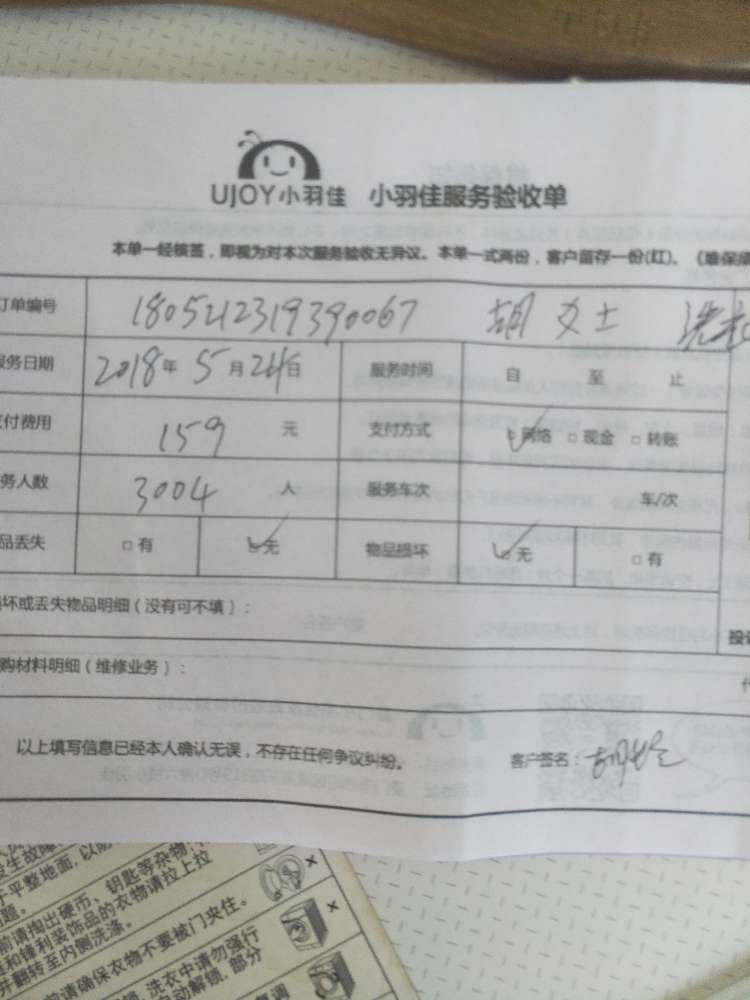 UJOY小羽佳 小羽佳服务验收单
本单一经核签，即视为对本次服务验收无异议。本单一式两份，客户留存一份(红)。《维保障
订单编号 1805212319390067 胡女士 洗
服务日期 2018年5月24日 服务时间 自 至 止
支付费用 159 元 支付方式 ☑网络 □现金 □转账
务人数 3004 人 服务车次 车/次
品丢失 □有 ☑无 物品损坏 ☑无 □有
损坏或丢失物品明细（没有可不填）：
投诉
购材料明细（维修业务）：
以上填写信息已经本人确认无误，不存在任何争议纠纷。 客户签名：胡
发生故障
于平整地面，以防
题。
前请掏出硬币、钥匙等杂物，
链和锋利装饰品的衣物请拉上拉
并翻转至内侧洗涤。
前请确保衣物不要被门夹住。
锁，洗衣中请勿强行
自动解锁，部分